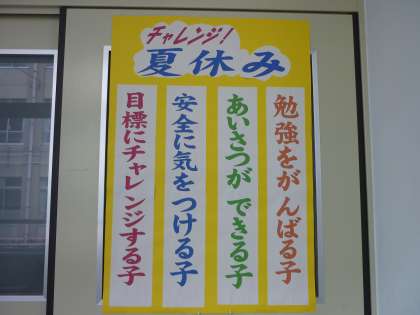 チャレンジ！
夏休み
勉強をがんばる子
あいさつができる子
安全に気をつける子
目標にチャレンジする子